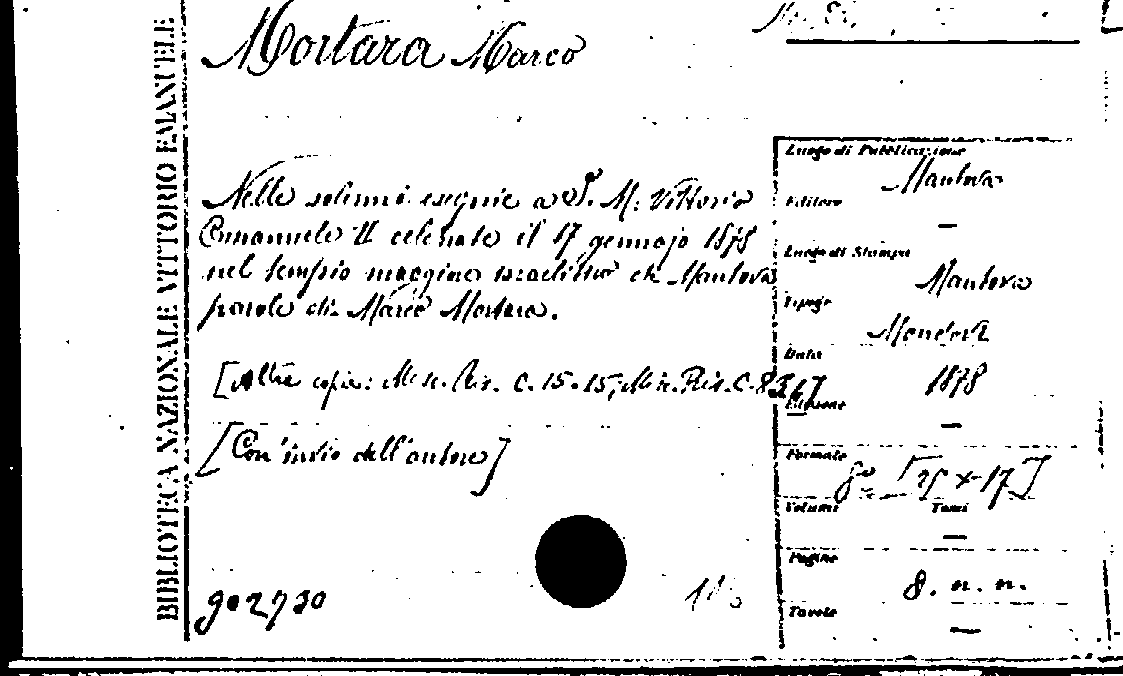 Mortara Marco
BIBLIOTECA NAZIONALE VITTORIO EMANUELE
Nelle solenni esequie a S. M. Vittorio
Emanuele II celebrate il 17 gennajo 1878
nel tempio maggiore israelitico di Mantova
parole di Marco Mortara.
[Altre copie: Misc. Ris. C. 15-15; Mis. Ris. C. 83.17
[Con invio dell'autore]
902730
Luogo di Pubblicazione
Mantova
Editore
—
Luogo di Stampa
Mantova
Tipogr
Mondovì
Data
1878
Edizione
—
Formato
8º [25 x 17]
Volumi Tomi
—
Pagine
8. n. n.
Tavole
—